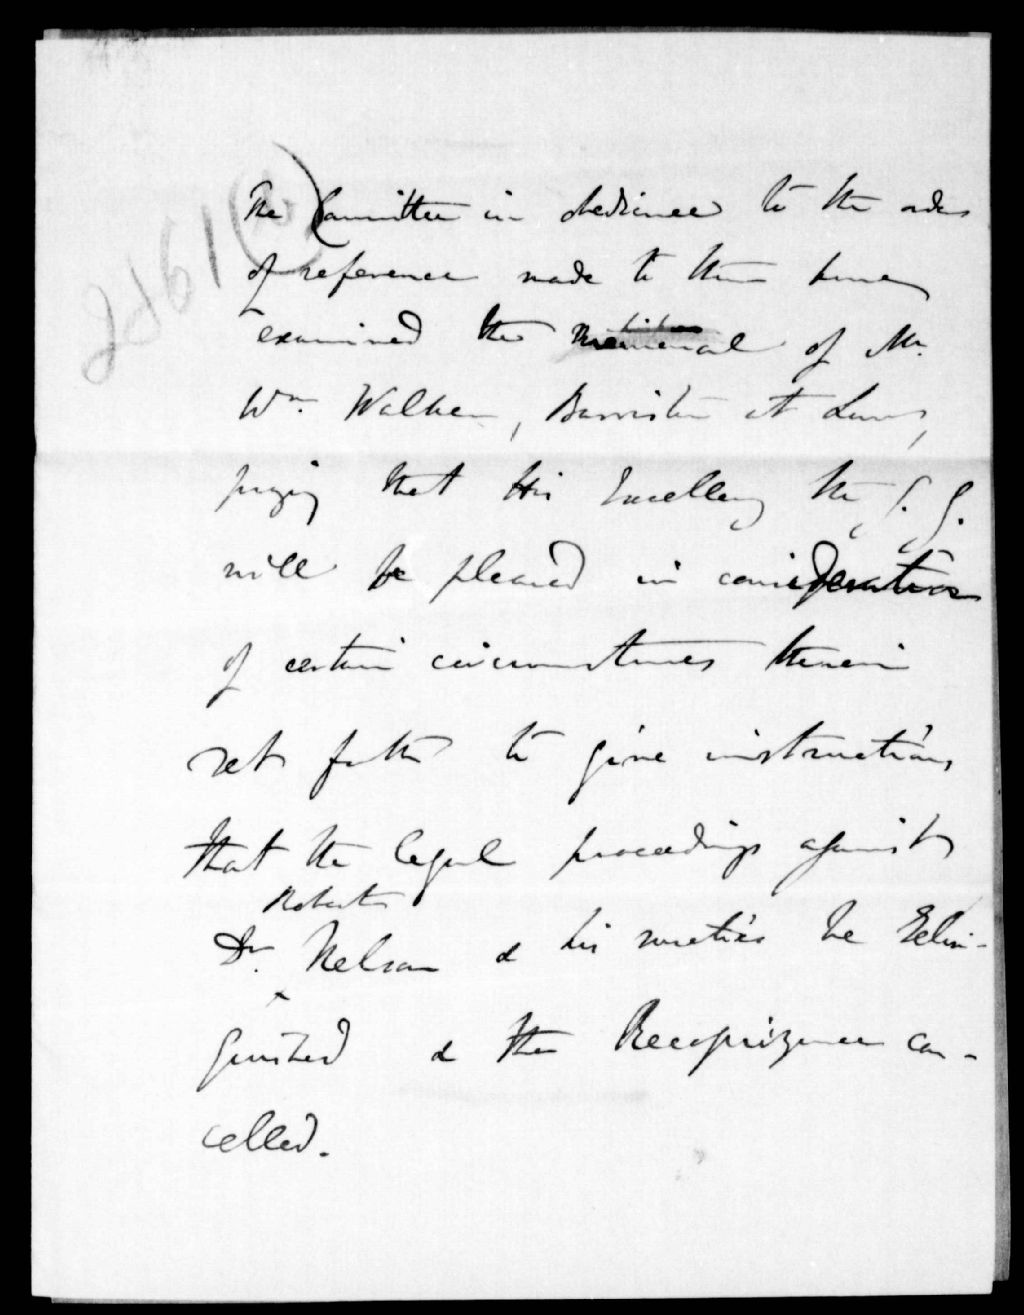 The Committee in obedience to the order
of reference made to them have
examined the Memorial of Mr.
Wm. Walker, Barrister at Law,
praying that His Excellency the G. G.
will be pleased in consideration
of certain circumstances therein
set forth to give instructions
that the legal proceedings against
Robert
Dr. Nelson & his sureties be Relin-
quished & the Recognizance can-
celled.